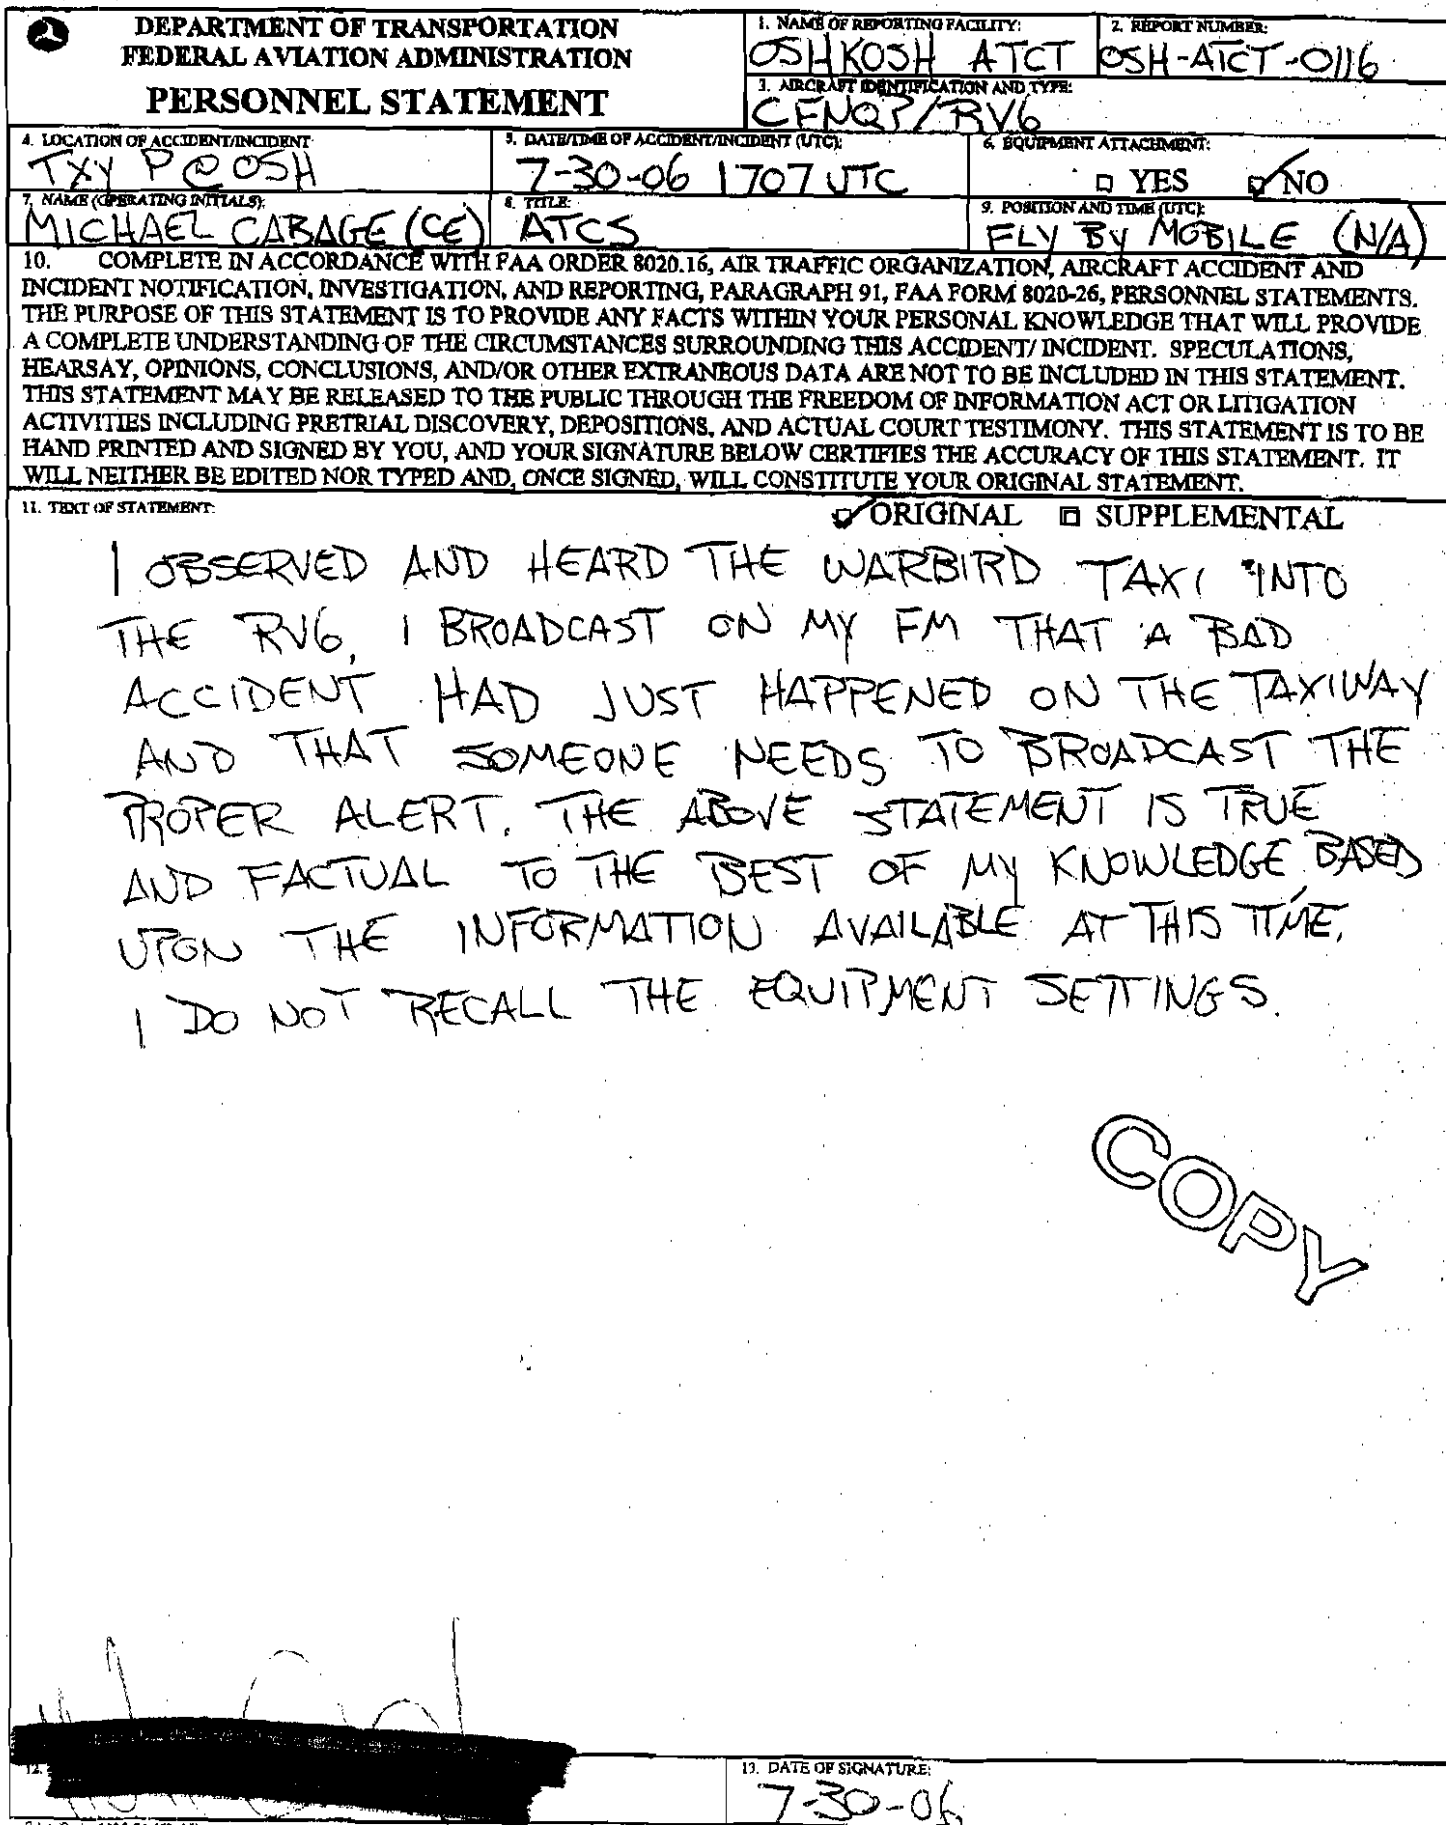 DEPARTMENT OF TRANSPORTATION
FEDERAL AVIATION ADMINISTRATION
PERSONNEL STATEMENT
1. NAME OF REPORTING FACILITY:
OSHKOSH ATCT
2. REPORT NUMBER:
OSH-ATCT-0116
3. AIRCRAFT IDENTIFICATION AND TYPE:
CFNQP/RV6
4. LOCATION OF ACCIDENT/INCIDENT
TXY P @ OSH
5. DATE/TIME OF ACCIDENT/INCIDENT (UTC):
7-30-06 1707 UTC
6. EQUIPMENT ATTACHMENT:
YES NO
7. NAME (OPERATING INITIALS):
MICHAEL CABAGE (CE)
8. TITLE:
ATCS
9. POSITION AND TIME (UTC):
FLY BY MOBILE (N/A)
10. COMPLETE IN ACCORDANCE WITH FAA ORDER 8020.16, AIR TRAFFIC ORGANIZATION, AIRCRAFT ACCIDENT AND
INCIDENT NOTIFICATION, INVESTIGATION, AND REPORTING, PARAGRAPH 91, FAA FORM 8020-26, PERSONNEL STATEMENTS.
THE PURPOSE OF THIS STATEMENT IS TO PROVIDE ANY FACTS WITHIN YOUR PERSONAL KNOWLEDGE THAT WILL PROVIDE
A COMPLETE UNDERSTANDING OF THE CIRCUMSTANCES SURROUNDING THIS ACCIDENT/ INCIDENT. SPECULATIONS,
HEARSAY, OPINIONS, CONCLUSIONS, AND/OR OTHER EXTRANEOUS DATA ARE NOT TO BE INCLUDED IN THIS STATEMENT.
THIS STATEMENT MAY BE RELEASED TO THE PUBLIC THROUGH THE FREEDOM OF INFORMATION ACT OR LITIGATION
ACTIVITIES INCLUDING PRETRIAL DISCOVERY, DEPOSITIONS, AND ACTUAL COURT TESTIMONY. THIS STATEMENT IS TO BE
HAND PRINTED AND SIGNED BY YOU, AND YOUR SIGNATURE BELOW CERTIFIES THE ACCURACY OF THIS STATEMENT. IT
WILL NEITHER BE EDITED NOR TYPED AND, ONCE SIGNED, WILL CONSTITUTE YOUR ORIGINAL STATEMENT.
11. TEXT OF STATEMENT:
ORIGINAL SUPPLEMENTAL
I OBSERVED AND HEARD THE WARBIRD TAXI INTO
THE RV6, I BROADCAST ON MY FM THAT A BAD
ACCIDENT HAD JUST HAPPENED ON THE TAXIWAY
AND THAT SOMEONE NEEDS TO BROADCAST THE
PROPER ALERT. THE ABOVE STATEMENT IS TRUE
AND FACTUAL TO THE BEST OF MY KNOWLEDGE, BASED
UPON THE INFORMATION AVAILABLE AT THIS TIME.
I DO NOT RECALL THE EQUIPMENT SETTINGS.
COPY
12.
13. DATE OF SIGNATURE:
7-30-06